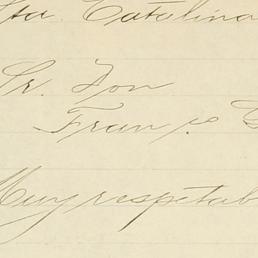 Sta Catalina
Sr. Don
Franco
Muy respetab